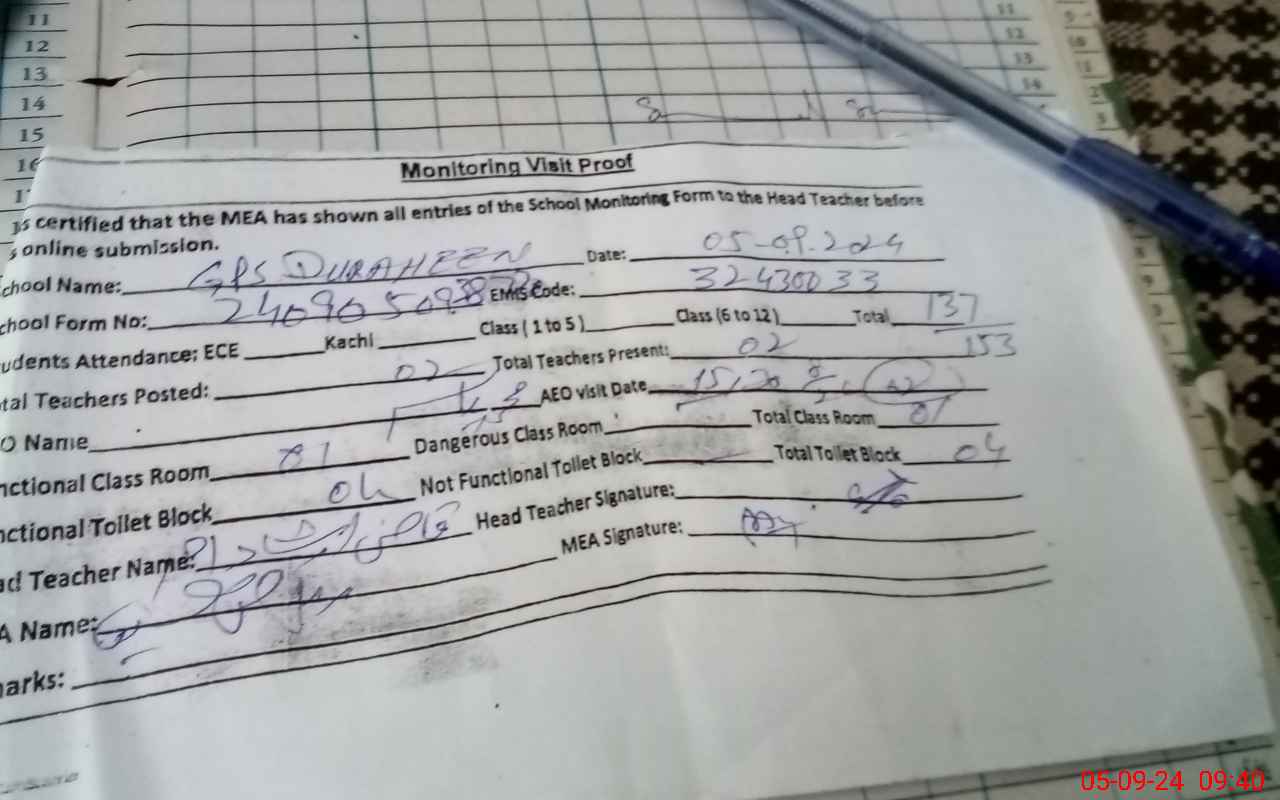 11 11
12 12
13 13
14 14
15
16
Monitoring Visit Proof
is certified that the MEA has shown all entries of the School Monitoring Form to the Head Teacher before
s online submission.
chool Name: GPS DURAHEEN Date: 05-09-2024
chool Form No: EMIS Code: 32430033
udents Attendance; ECE Kachi Class ( 1 to 5 ) Class (6 to 12) Total 137
153
tal Teachers Posted: 02 Total Teachers Present: 02
O Name AEO visit Date
nctional Class Room 01 Dangerous Class Room Total Class Room 01
nctional Toilet Block 04 Not Functional Toilet Block Total Toilet Block 04
ad Teacher Name: Head Teacher Signature:
A Name: MEA Signature:
arks:
05-09-24 09:40